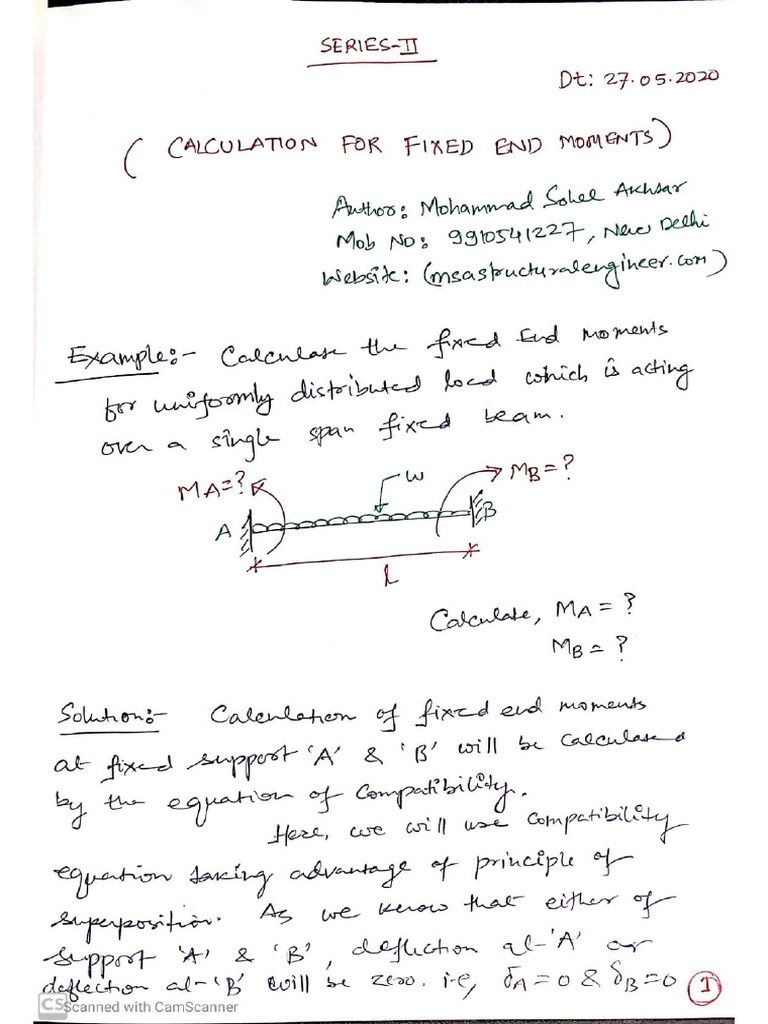 SERIES-II
Dt: 27.05.2020
( CALCULATION FOR FIXED END MOMENTS)
Author: Mohammad Sohel Akhtar
Mob No: 9910541227, New Delhi
Website: (msastructuralengineer.com)
Example:- Calculate the fixed End moments
for uniformly distributed load which is acting
over a single span fixed beam.
MA=? w MB=?
A B
L
Calculate, MA = ?
MB = ?
Solution:- Calculation of fixed end moments
at fixed support 'A' & 'B' will be calculated
by the equation of compatibility.
Here, we will use compatibility
equation taking advantage of principle of
superposition. As we know that either of
support 'A' & 'B', deflection at 'A' or
deflection at 'B' will be zero. i.e, δA = 0 & δB = 0 1
CS Scanned with CamScanner